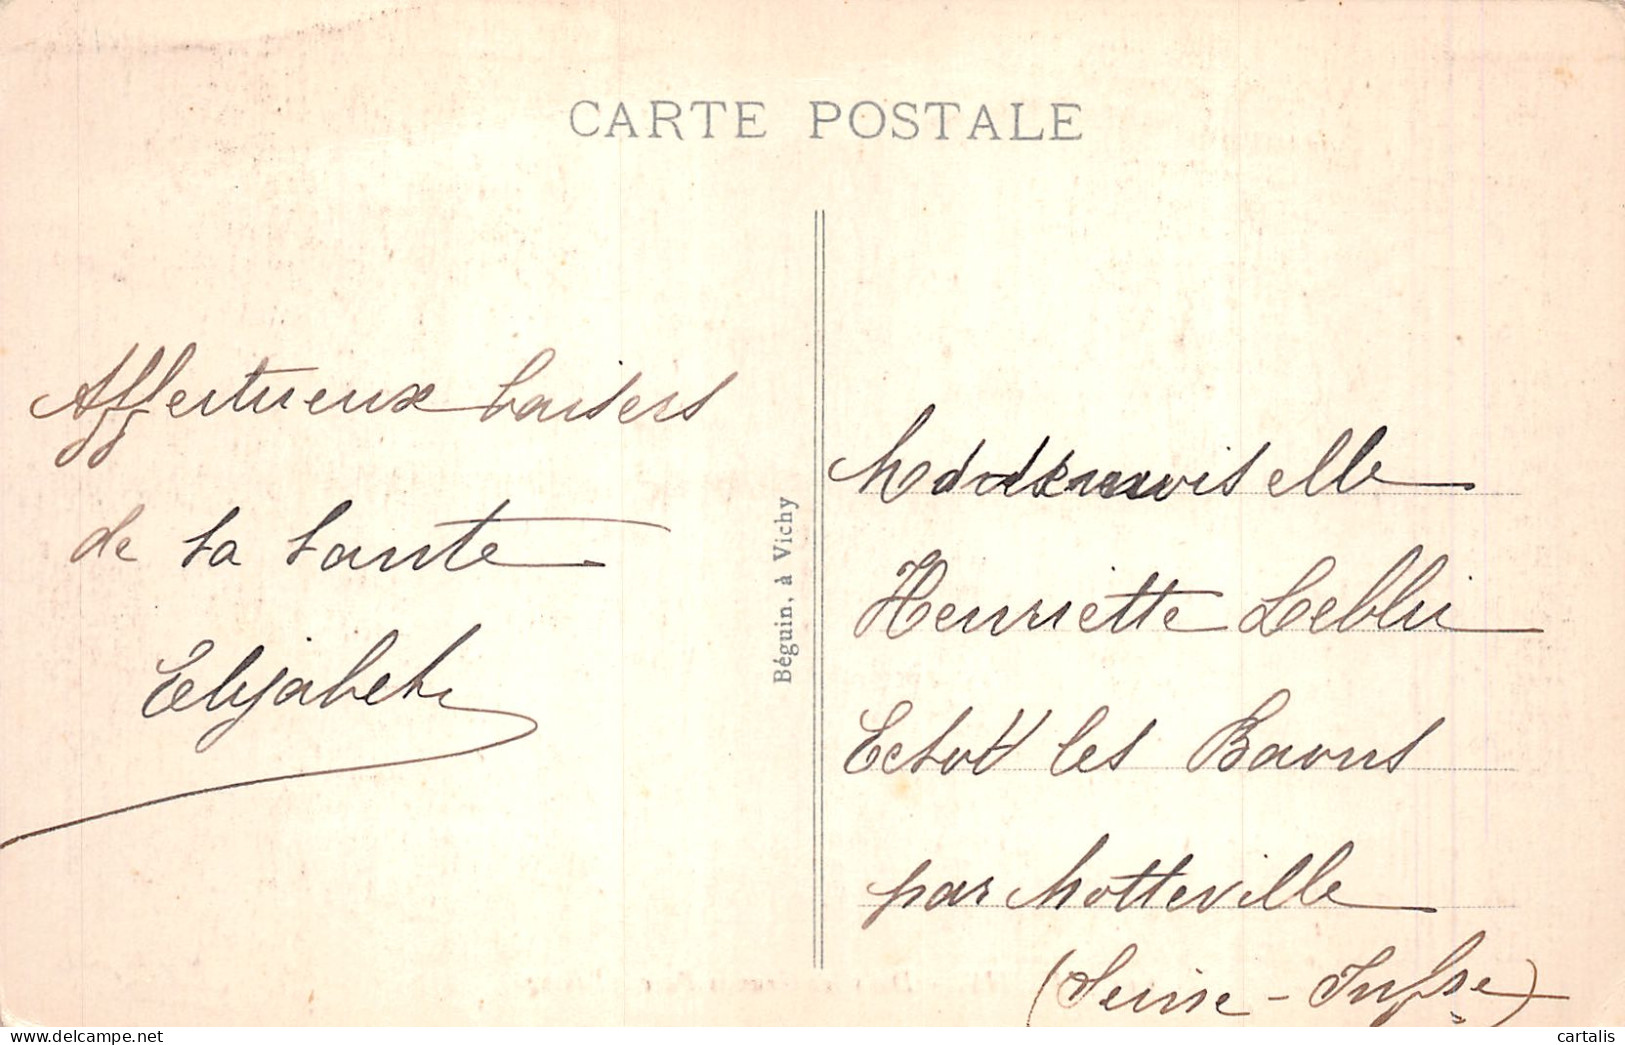 CARTE POSTALE
Affectueux baisers
de ta tante
Elizabeth
Béguin, à Vichy
Mademoiselle
Henriette
les Baons
par Motteville
(Seine-Infre)
cartalis